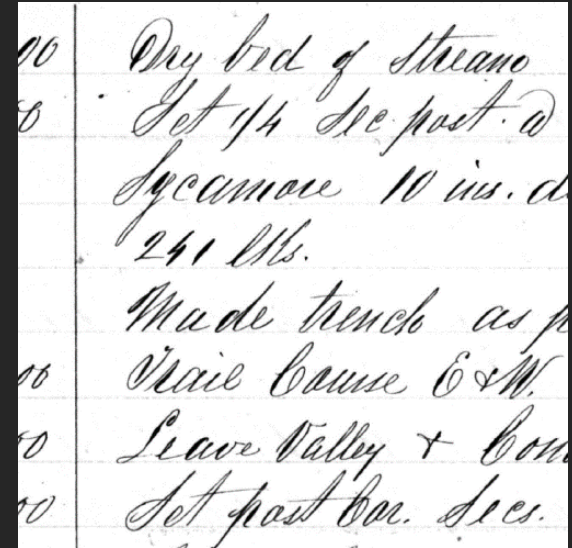 00 Dry bed of stream
Set 1/4 Sec. post. a
Sycamore 10 ins. d
241 lks.
Made trench as p
00 Trail Course E & W.
00 Leave Valley + Com
00 Set post Cor. Secs.